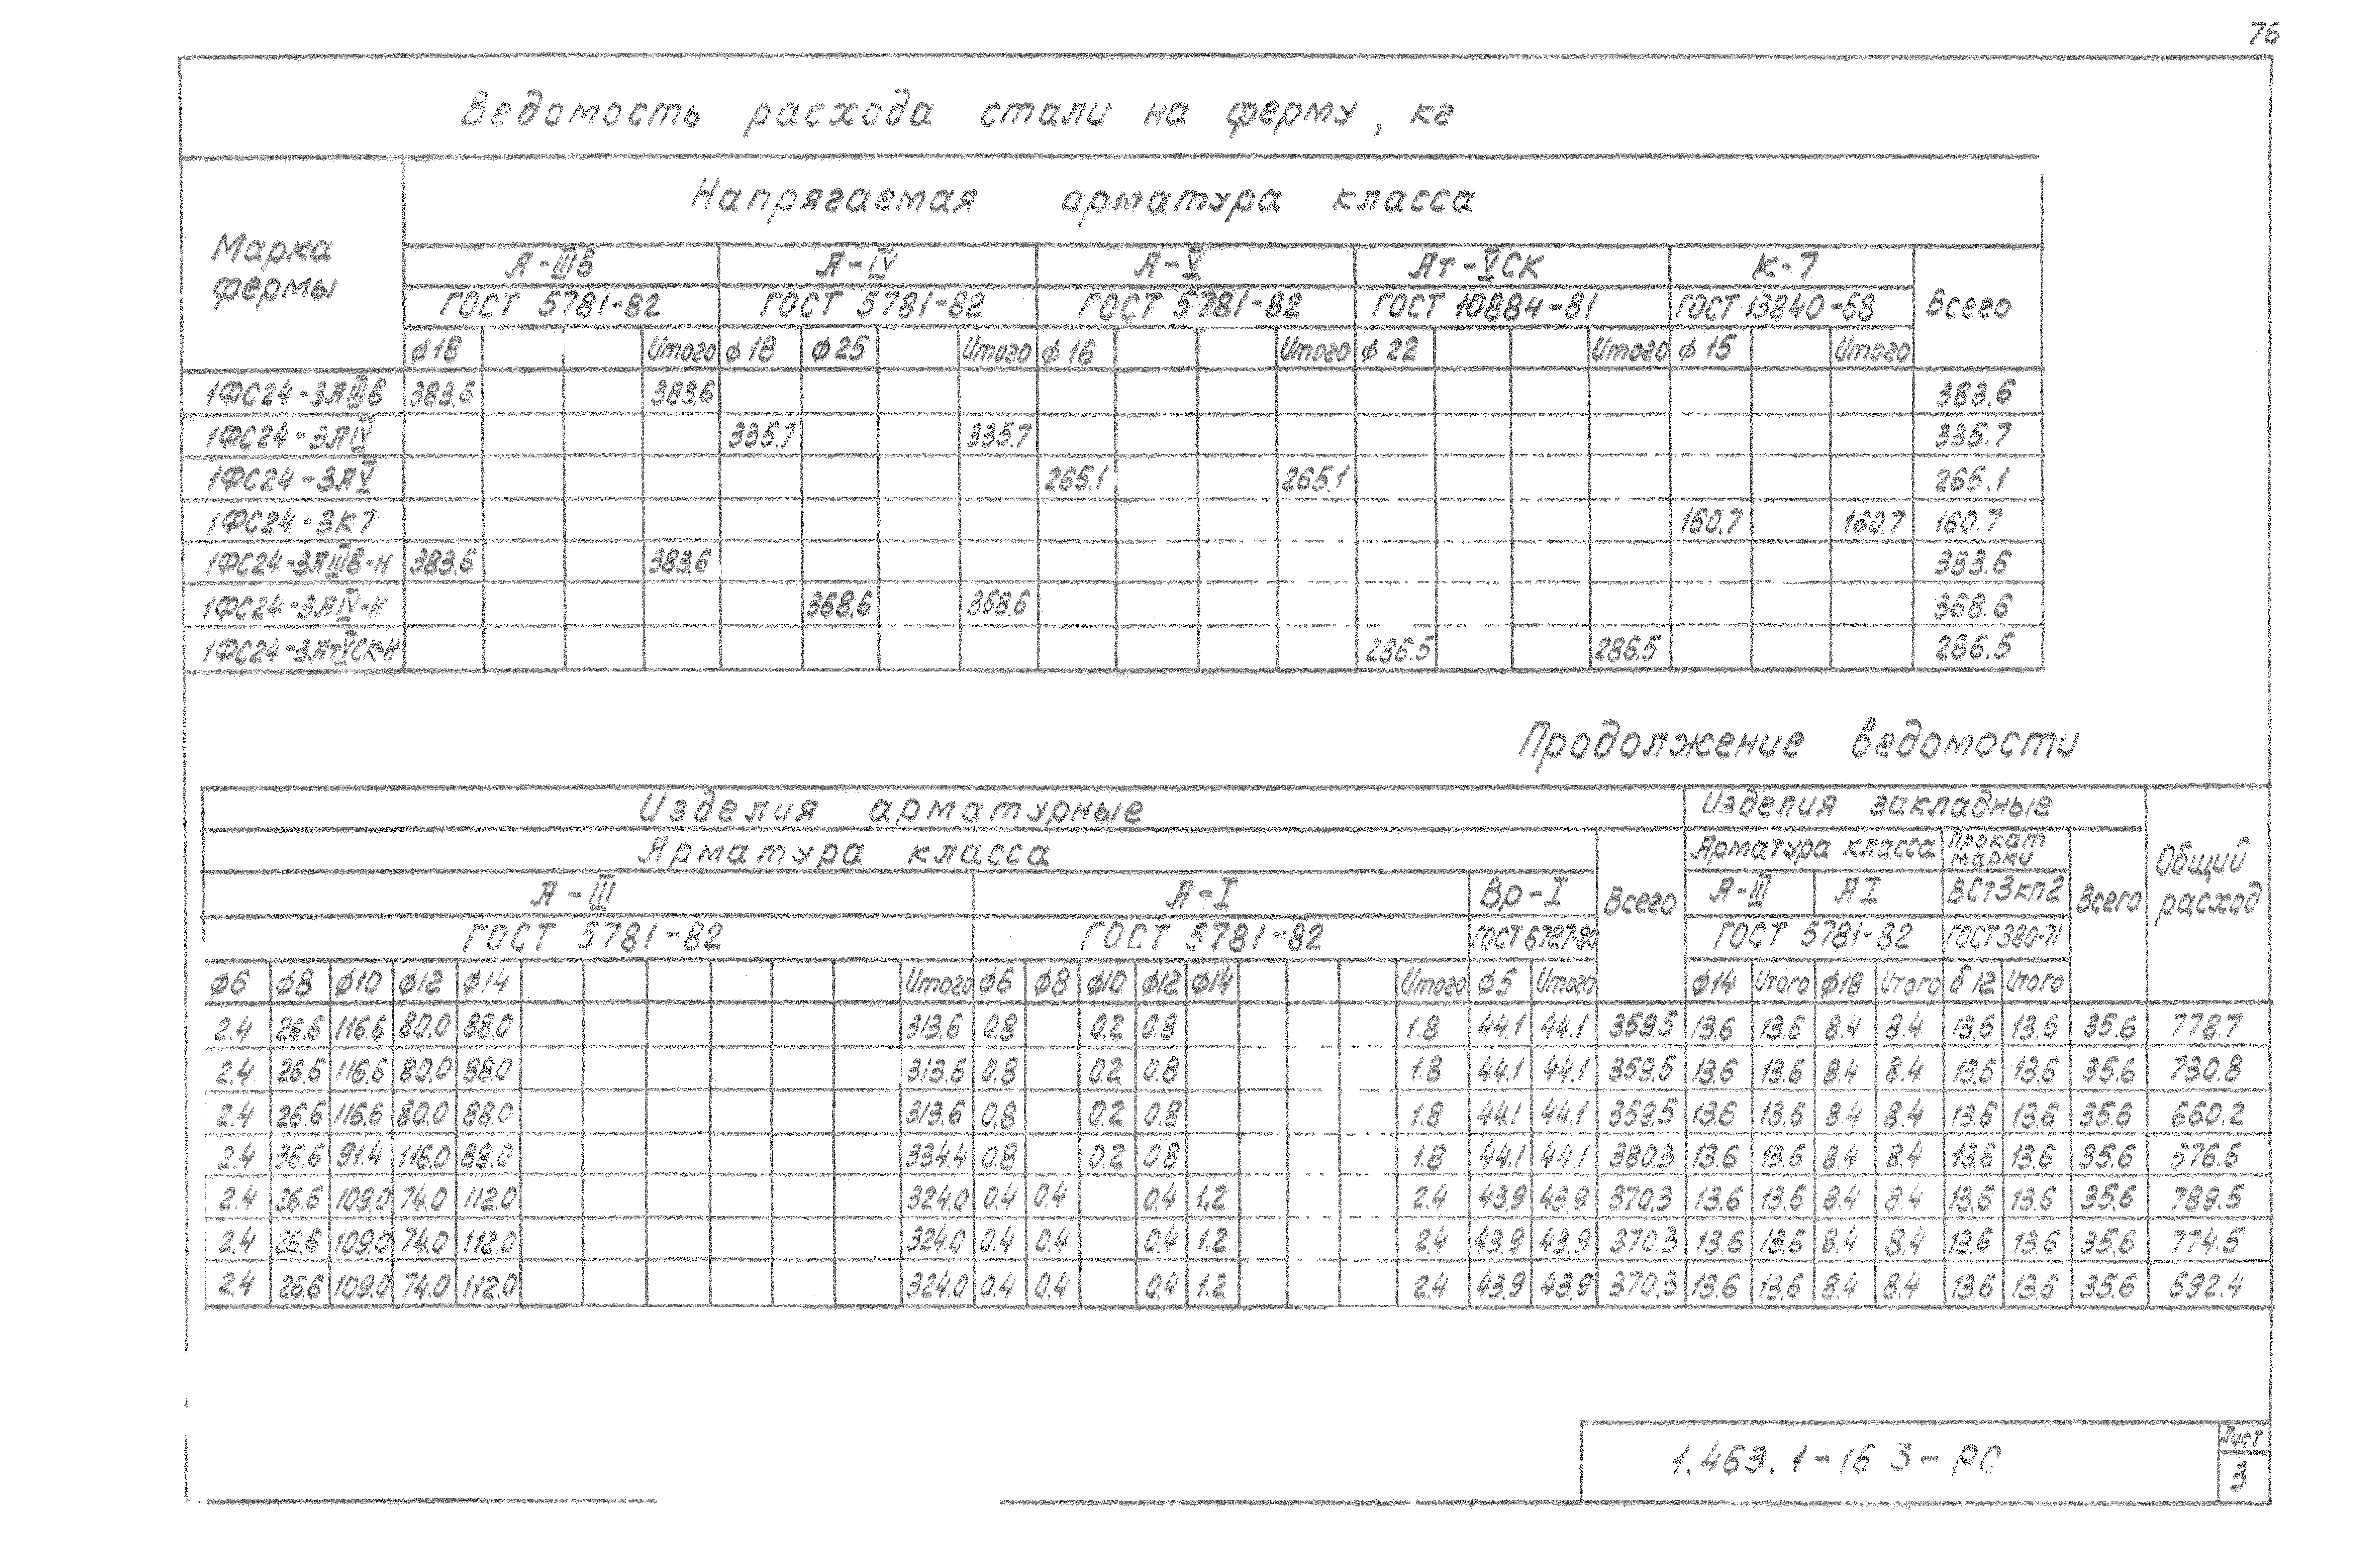 76
Ведомость расхода стали на ферму, кг
Марка фермы
Напрягаемая арматура класса
А-IIIв А-IV А-V Ат-VСК К-7 Всего
ГОСТ 5781-82 ГОСТ 5781-82 ГОСТ 5781-82 ГОСТ 10884-81 ГОСТ 13840-68
ϕ18 Итого ϕ18 ϕ25 Итого ϕ16 Итого ϕ22 Итого ϕ15 Итого
1ФС24-3АIIIв 383.6 383.6 383.6
1ФС24-3АIV 335.7 335.7 335.7
1ФС24-3АV 265.1 265.1 265.1
1ФС24-3К7 160.7 160.7 160.7
1ФС24-3АIIIв-Н 383.6 383.6 383.6
1ФС24-3АIV-Н 368.6 368.6 368.6
1ФС24-3АтVСК-Н 286.5 286.5 286.5
Продолжение ведомости
Изделия арматурные Изделия закладные Общий расход
Арматура класса Всего Арматура класса Прокат марки Всего
А-III А-I Вр-I А-III АI ВСт3кп2
ГОСТ 5781-82 ГОСТ 5781-82 ГОСТ 6727-80 ГОСТ 5781-82 ГОСТ 380-71
ϕ6 ϕ8 ϕ10 ϕ12 ϕ14 Итого ϕ6 ϕ8 ϕ10 ϕ12 ϕ14 Итого ϕ5 Итого ϕ14 Итого ϕ18 Итого δ12 Итого
2.4 26.6 116.6 80.0 88.0 313.6 0.8 0.2 0.8 1.8 44.1 44.1 359.5 13.6 13.6 8.4 8.4 13.6 13.6 35.6 778.7
2.4 26.6 116.6 80.0 88.0 313.6 0.8 0.2 0.8 1.8 44.1 44.1 359.5 13.6 13.6 8.4 8.4 13.6 13.6 35.6 730.8
2.4 26.6 116.6 80.0 88.0 313.6 0.8 0.2 0.8 1.8 44.1 44.1 359.5 13.6 13.6 8.4 8.4 13.6 13.6 35.6 660.2
2.4 36.6 91.4 116.0 88.0 334.4 0.8 0.2 0.8 1.8 44.1 44.1 380.3 13.6 13.6 8.4 8.4 13.6 13.6 35.6 576.6
2.4 26.6 109.0 74.0 112.0 324.0 0.4 0.4 0.4 1.2 2.4 43.9 43.9 370.3 13.6 13.6 8.4 8.4 13.6 13.6 35.6 789.5
2.4 26.6 109.0 74.0 112.0 324.0 0.4 0.4 0.4 1.2 2.4 43.9 43.9 370.3 13.6 13.6 8.4 8.4 13.6 13.6 35.6 774.5
2.4 26.6 109.0 74.0 112.0 324.0 0.4 0.4 0.4 1.2 2.4 43.9 43.9 370.3 13.6 13.6 8.4 8.4 13.6 13.6 35.6 692.4
1.463.1-16 3-РС
Лист
3